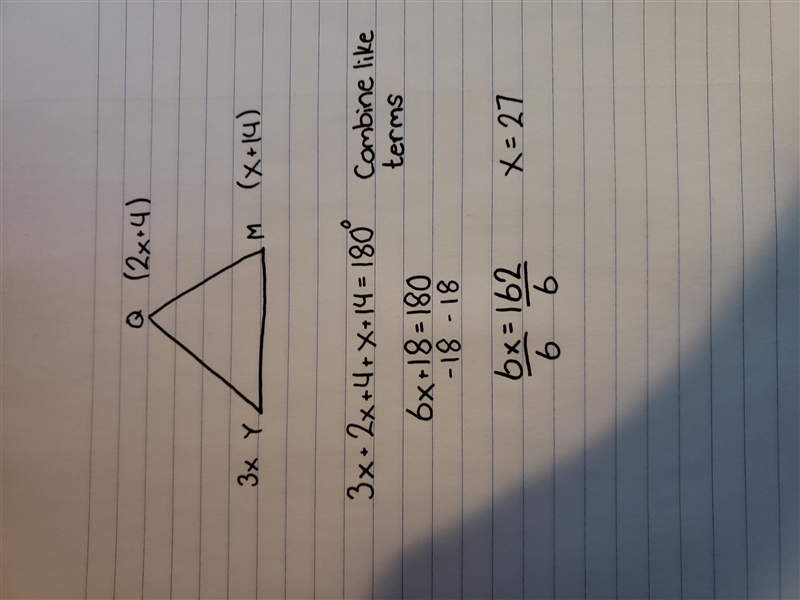 Q (2x+4)
3x Y M (x+14)
3x+2x+4+x+14=180° Combine like
terms
6x+18=180
-18 -18
6x=162 x=27
6 6